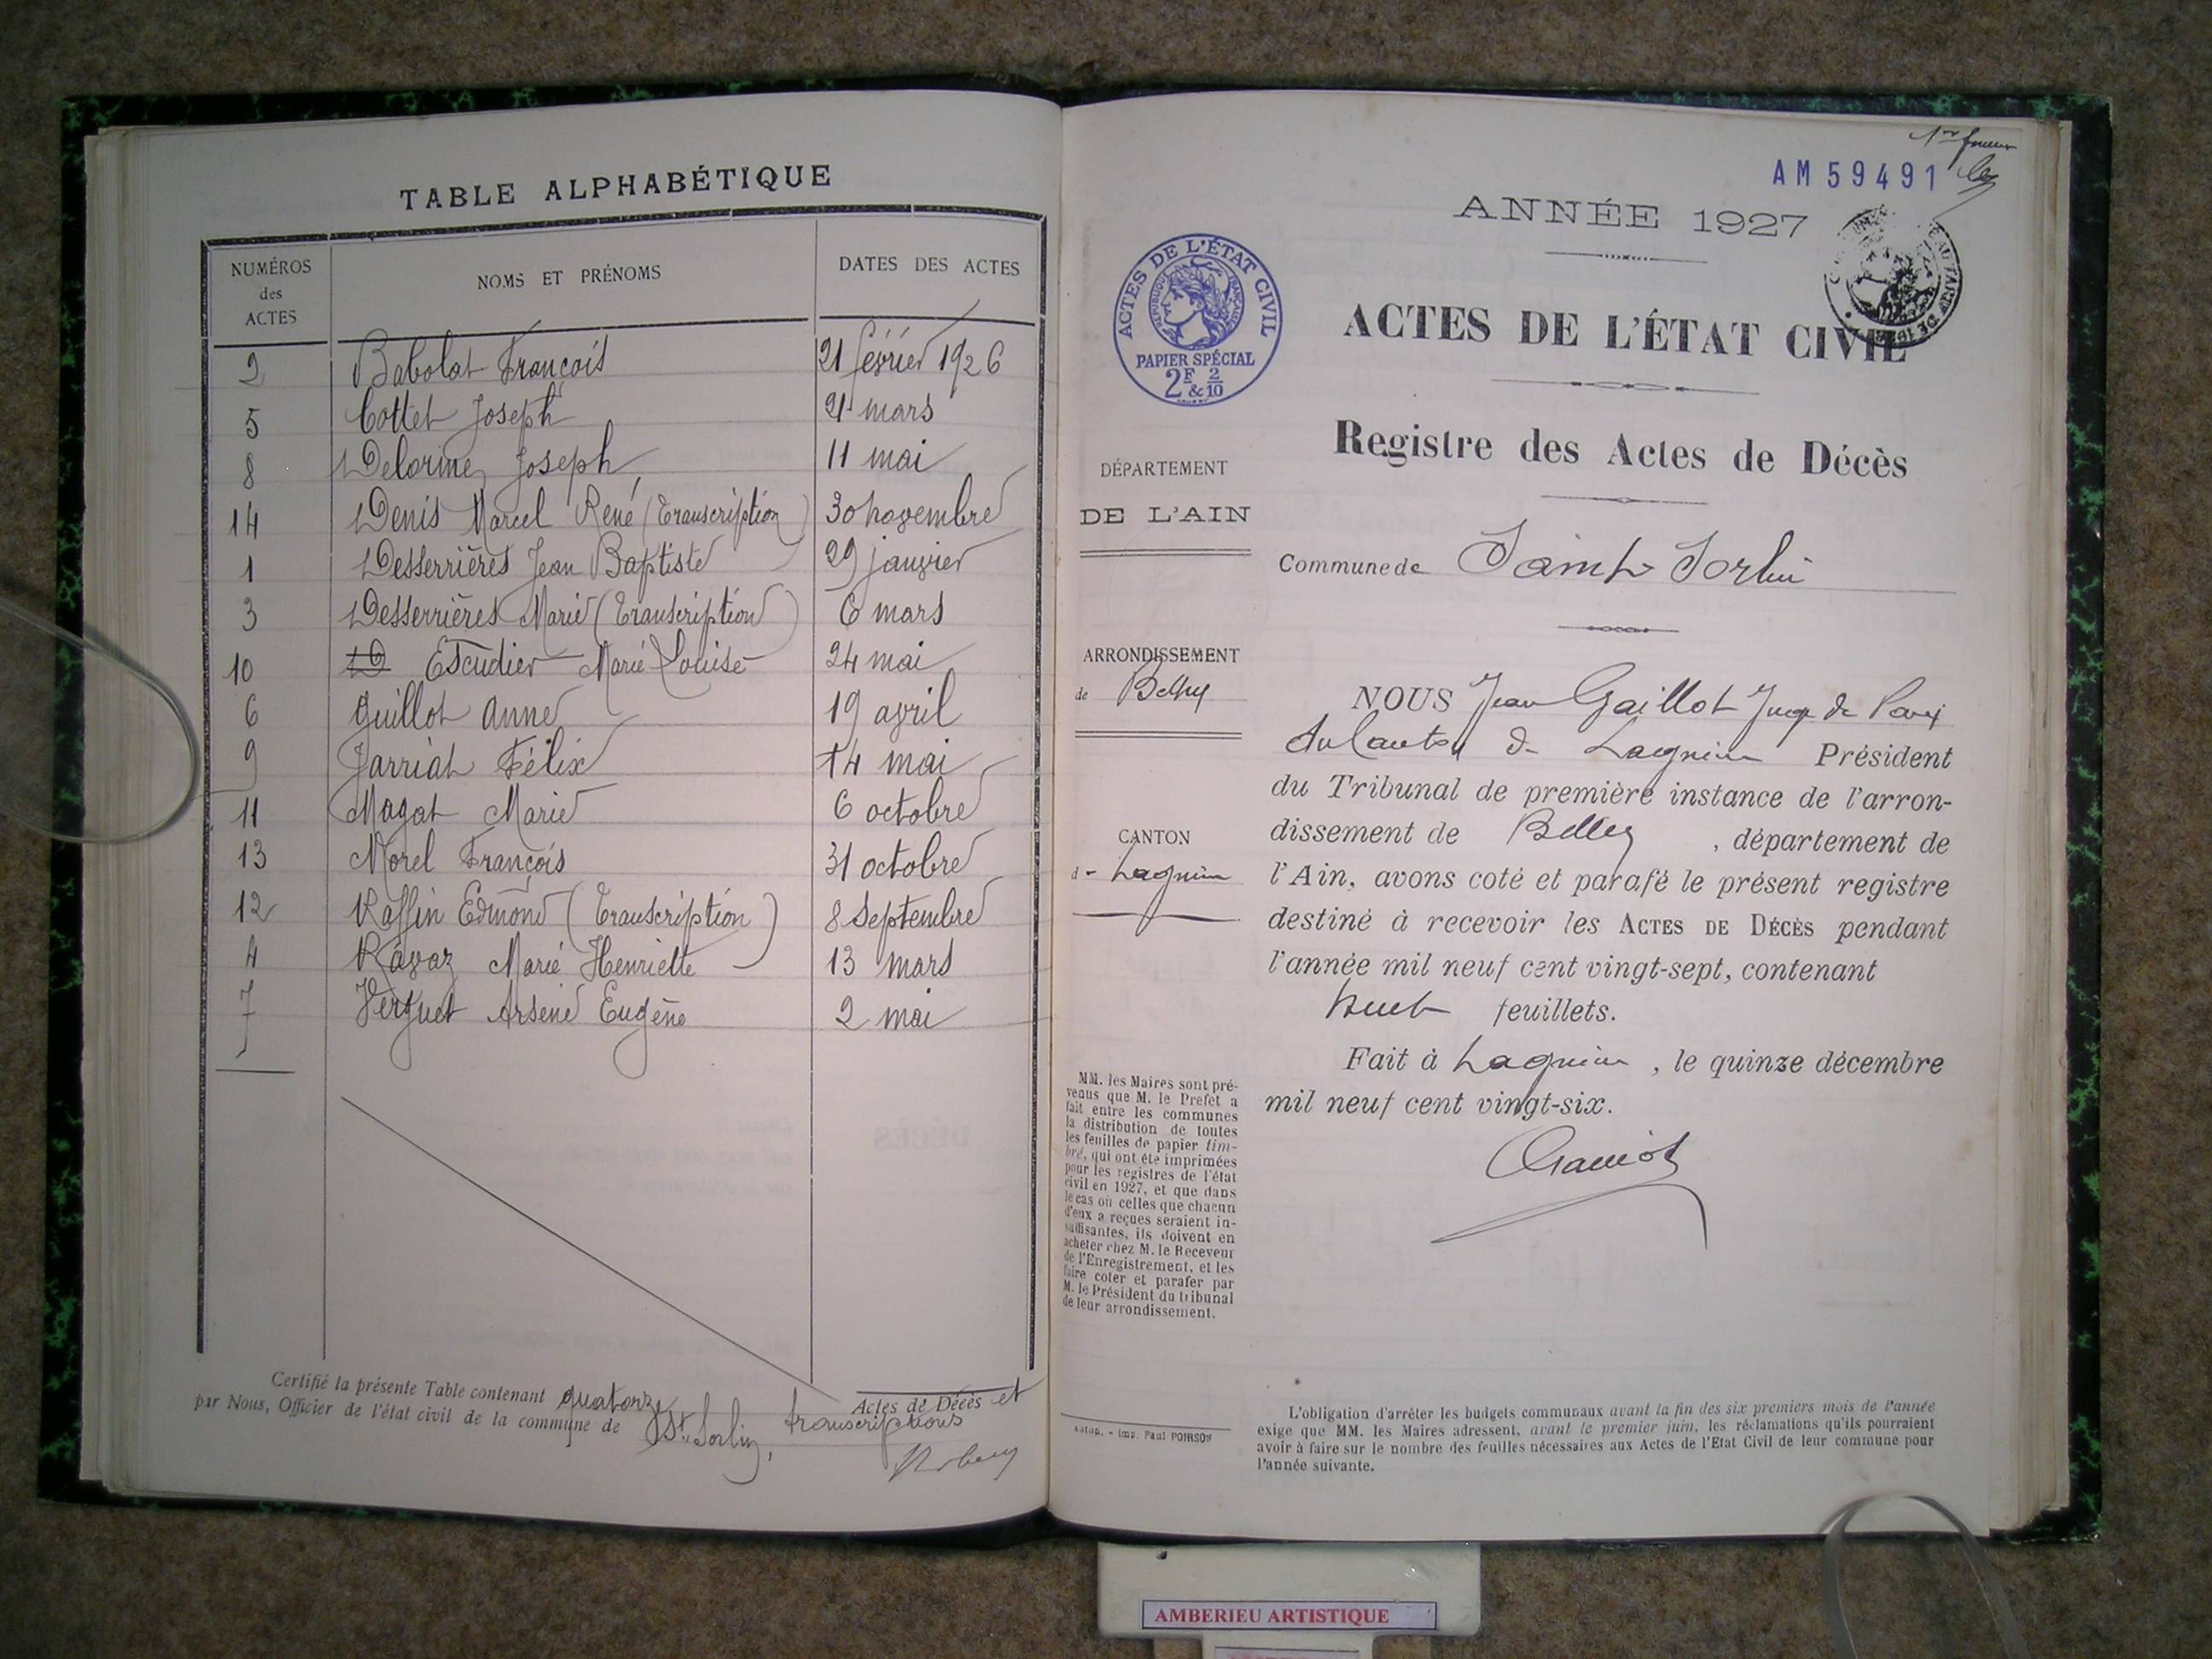 TABLE ALPHABÉTIQUE
NUMÉROS des ACTES NOMS ET PRÉNOMS DATES DES ACTES
2 Babolat François 21 février 1926
5 Cottet Joseph 21 mars
8 Delorme Joseph 11 mai
14 Denis Marcel René (Transcription) 30 novembre
1 Desserrières Jean Baptiste 29 janvier
3 Desserrières Marie (Transcription) 6 mars
10 Escudier Marie Louise 24 mai
6 Guillot Anne 19 avril
9 Jarriat Félix 14 mai
11 Magat Marie 6 octobre
13 Morel François 31 octobre
12 Raffin Edmond (Transcription) 8 Septembre
4 Ravaz Marie Henriette 13 mars
7 Verguet Arsène Eugène 2 mai
Certifié la présente Table contenant quatorze Actes de Décès et transcriptions
par Nous, Officier de l'état civil de la commune de St. Sorlin,
AM 59491
ANNÉE 1927
ACTES DE L'ÉTAT CIVIL
RÉPUBLIQUE FRANÇAISE
PAPIER SPÉCIAL
2F & 2/10
ACTES DE L'ÉTAT CIVIL
Registre des Actes de Décès
DÉPARTEMENT
DE L'AIN
Commune de Saint Sorlin
ARRONDISSEMENT
de Belley
CANTON
de Lagnieu
NOUS Jean Gaillot Juge de Paix
du Canton de Lagnieu Président
du Tribunal de première instance de l'arron-
dissement de Belley, département de
l'Ain, avons coté et parafé le présent registre
destiné à recevoir les ACTES DE DÉCÈS pendant
l'année mil neuf cent vingt-sept, contenant
huit feuillets.
Fait à Lagnieu, le quinze décembre
mil neuf cent vingt-six.
MM. les Maires sont pré-
venus que M. le Préfet a
fait entre les communes
la distribution de toutes
les feuilles de papier tim-
bré, qui ont été imprimées
pour les registres de l'état
civil en 1927, et que dans
le cas où celles que chacun
d'eux a reçues seraient in-
suffisantes, ils doivent en
acheter chez M. le Receveur
de l'Enregistrement, et les
faire coter et parafer par
M. le Président du tribunal
de leur arrondissement.
Autun. - Imp. Paul POIRSON
L'obligation d'arrêter les budgets communaux avant la fin des six premiers mois de l'année
exige que MM. les Maires adressent, avant le premier juin, les réclamations qu'ils pourraient
avoir à faire sur le nombre des feuilles nécessaires aux Actes de l'Etat Civil de leur commune pour
l'année suivante.
AMBERIEU ARTISTIQUE